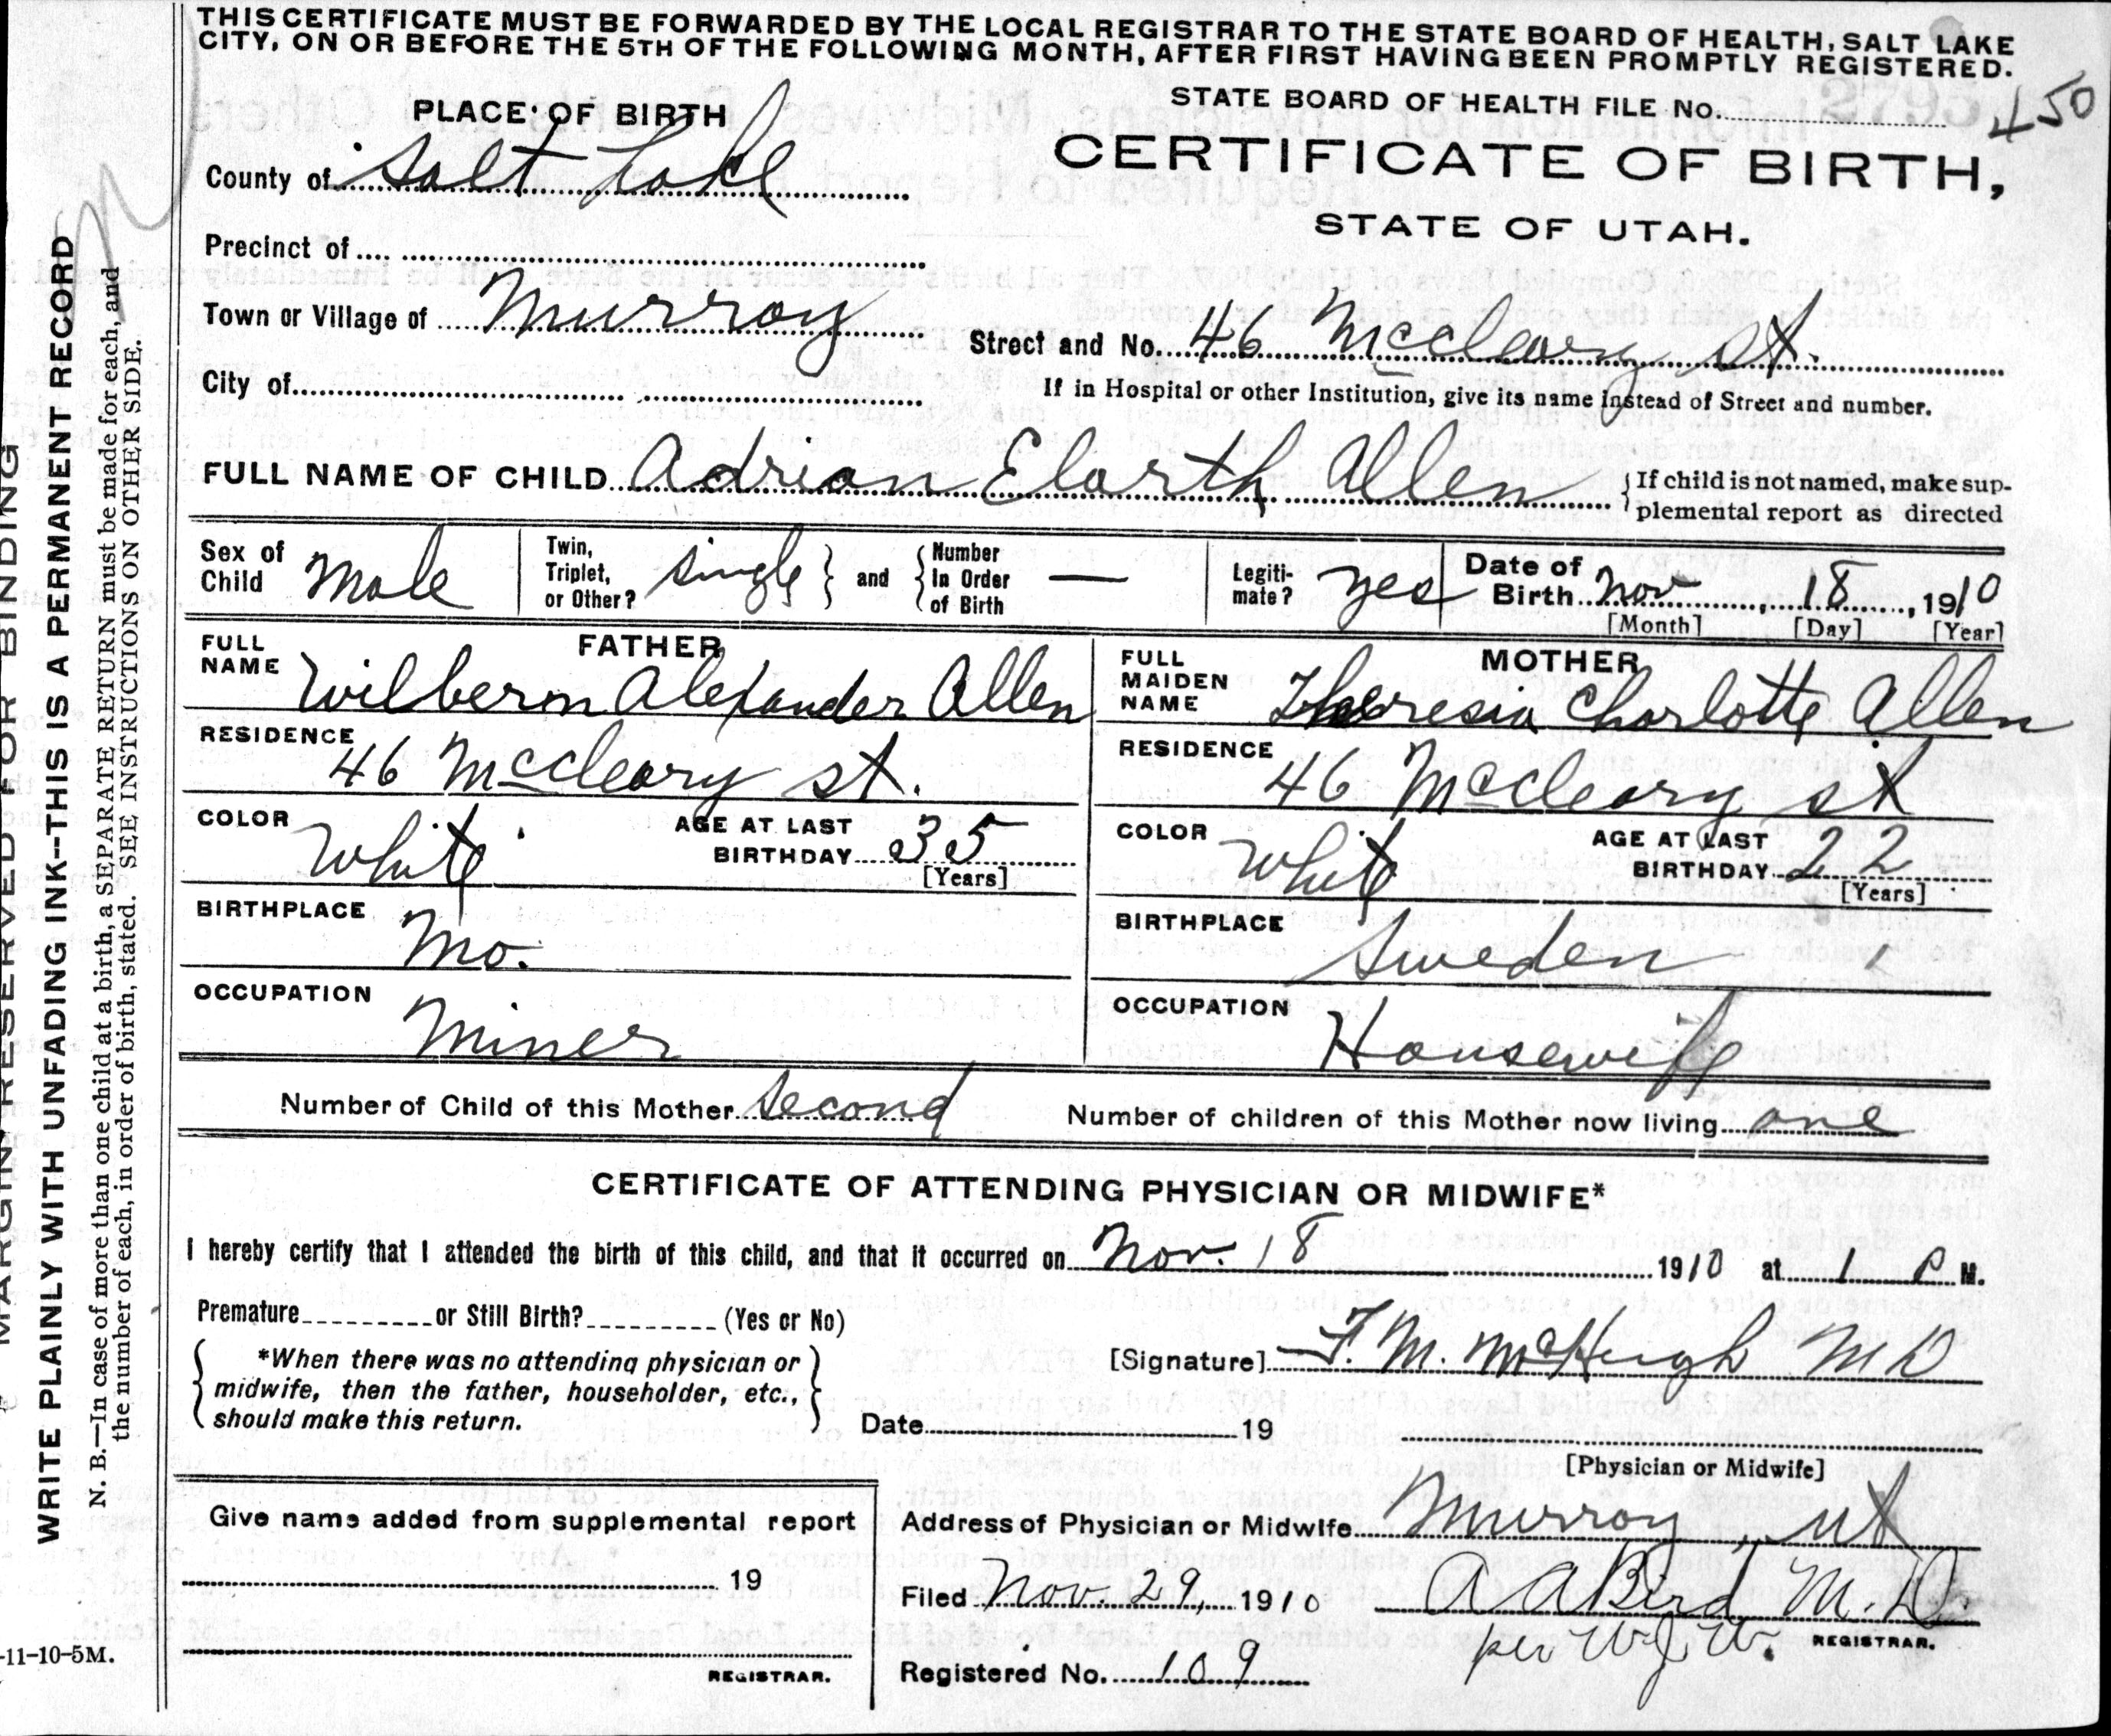 THIS CERTIFICATE MUST BE FORWARDED BY THE LOCAL REGISTRAR TO THE STATE BOARD OF HEALTH, SALT LAKE
CITY, ON OR BEFORE THE 5TH OF THE FOLLOWING MONTH, AFTER FIRST HAVING BEEN PROMPTLY REGISTERED.
PLACE OF BIRTH
STATE BOARD OF HEALTH FILE No. 450
County of Salt Lake
CERTIFICATE OF BIRTH,
STATE OF UTAH.
Precinct of
Town or Village of Murray
Street and No. 46 McCleary st.
City of
If in Hospital or other Institution, give its name instead of Street and number.
FULL NAME OF CHILD Adrian Elarth Allen
If child is not named, make sup-
plemental report as directed
Sex of
Child Male
Twin,
Triplet,
or Other? Single
and
Number
In Order
of Birth —
Legiti-
mate? yes
Date of
Birth Nov 18, 1910
[Month] [Day] [Year]
FATHER
FULL
NAME Wilbern Alexander Allen
RESIDENCE
46 McCleary st.
COLOR White
AGE AT LAST
BIRTHDAY 35
[Years]
BIRTHPLACE
Mo.
OCCUPATION
Miner
MOTHER
FULL
MAIDEN
NAME Theresia Charlotte Allen
RESIDENCE
46 McCleary st
COLOR White
AGE AT LAST
BIRTHDAY 22
[Years]
BIRTHPLACE
Sweden
OCCUPATION
Housewife
Number of Child of this Mother Second
Number of children of this Mother now living one
CERTIFICATE OF ATTENDING PHYSICIAN OR MIDWIFE*
I hereby certify that I attended the birth of this child, and that it occurred on Nov. 18 1910 at 1 P M.
Premature or Still Birth? (Yes or No)
*When there was no attending physician or
midwife, then the father, householder, etc.,
should make this return.
[Signature] F. M. McHugh MD
Date 19
[Physician or Midwife]
Give name added from supplemental report
19
REGISTRAR.
Address of Physician or Midwife Murray, Ut
Filed Nov. 29, 1910
A A Bird M.D.
per W.J.W. REGISTRAR.
Registered No. 109
MARGIN RESERVED FOR BINDING
WRITE PLAINLY WITH UNFADING INK--THIS IS A PERMANENT RECORD
N. B.—In case of more than one child at a birth, a SEPARATE RETURN must be made for each, and
the number of each, in order of birth, stated. SEE INSTRUCTIONS ON OTHER SIDE.
-11-10-5M.